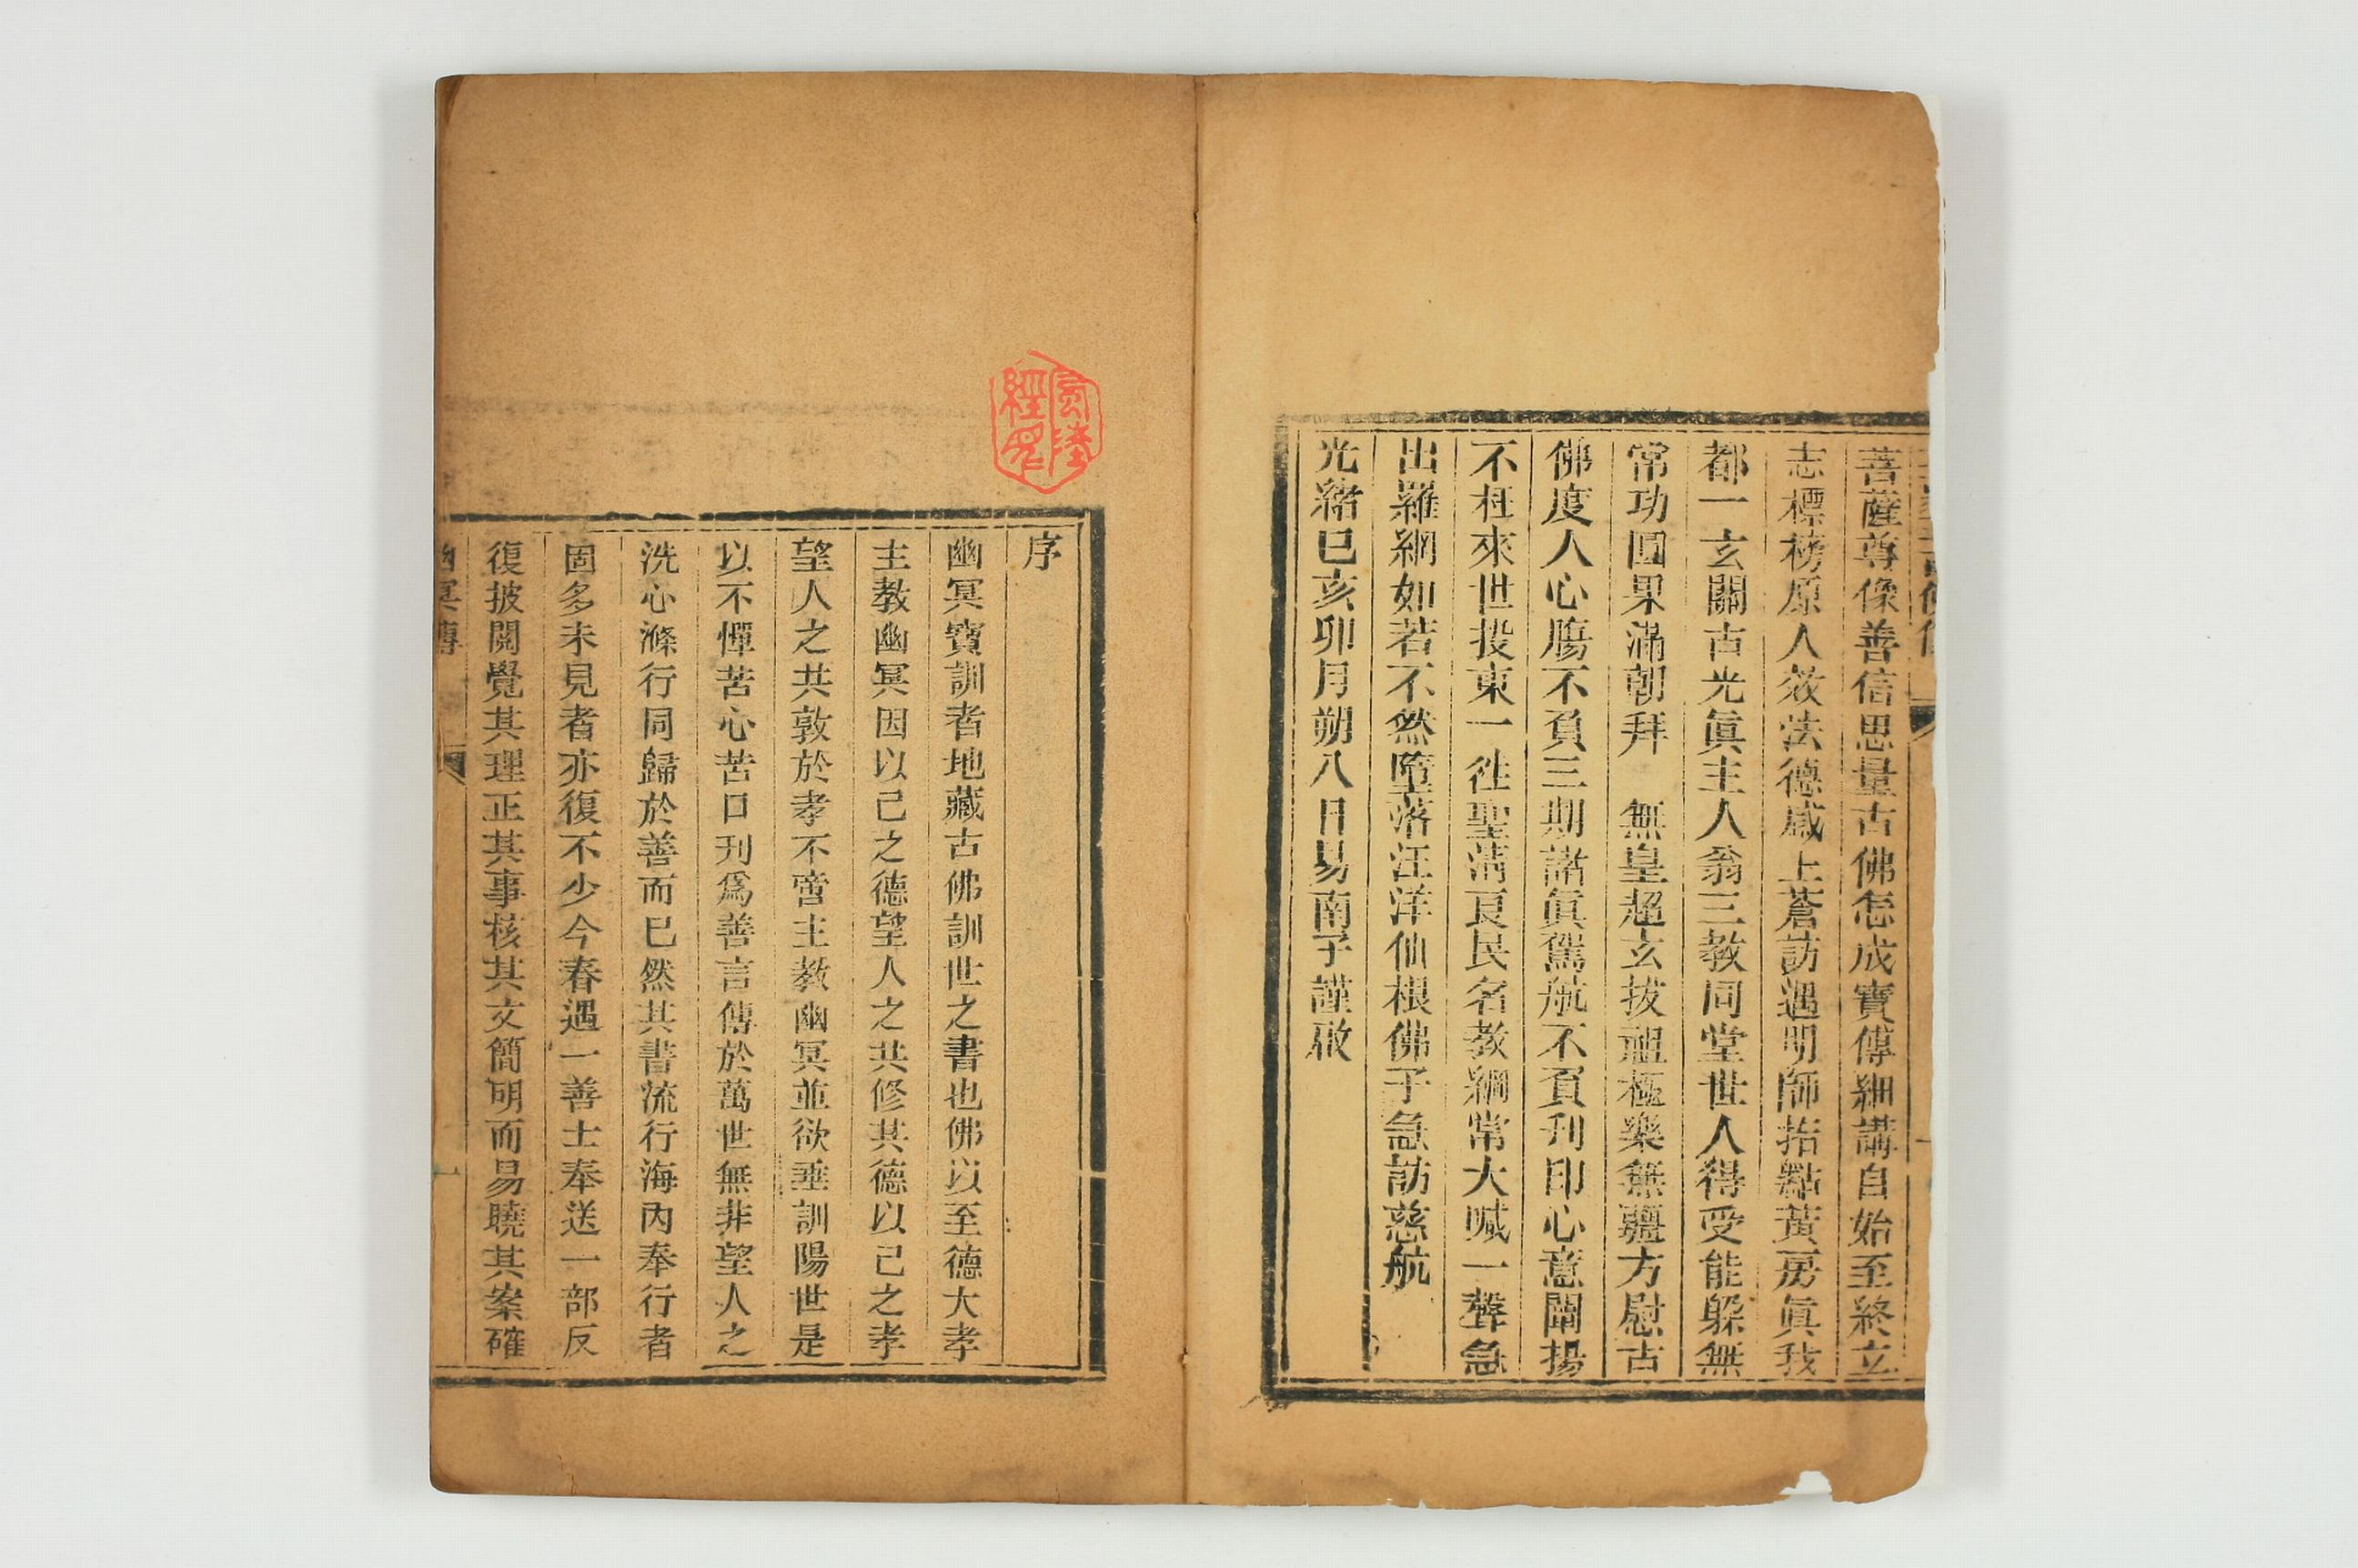 菩薩尊像善信思量古佛怎成寶傳細講自始至終立
志標榜原人效法德感上蒼訪遇明師指點黃房眞我
都一玄關古光眞主人翁三教同堂世人得受能躱無
常功圓果滿朝拜　無皇超玄拔祖極樂無疆方慰古
佛度人心膓不負三期諸眞駕航不負刊印心意闡揚
不枉來世投東一徃聖淸良民名教綱常大喊一聲急
出羅網如若不然墮落汪洋仙根佛子急訪慈航
光緒已亥卯月朔八日易南子謹啟
序
幽冥寶訓者地藏古佛訓世之書也佛以至德大孝
主教幽冥因以己之德望人之共修其德以己之孝
望人之共敦於孝不啻主教幽冥並欲垂訓陽世是
以不憚苦心苦口刊爲善言傳於萬世無非望人之
洗心滌行同歸於善而已然其書流行海內奉行者
固多未見者亦復不少今春遇一善士奉送一部反
復披閱覺其理正其事核其文簡明而易曉其案確
幽冥傳